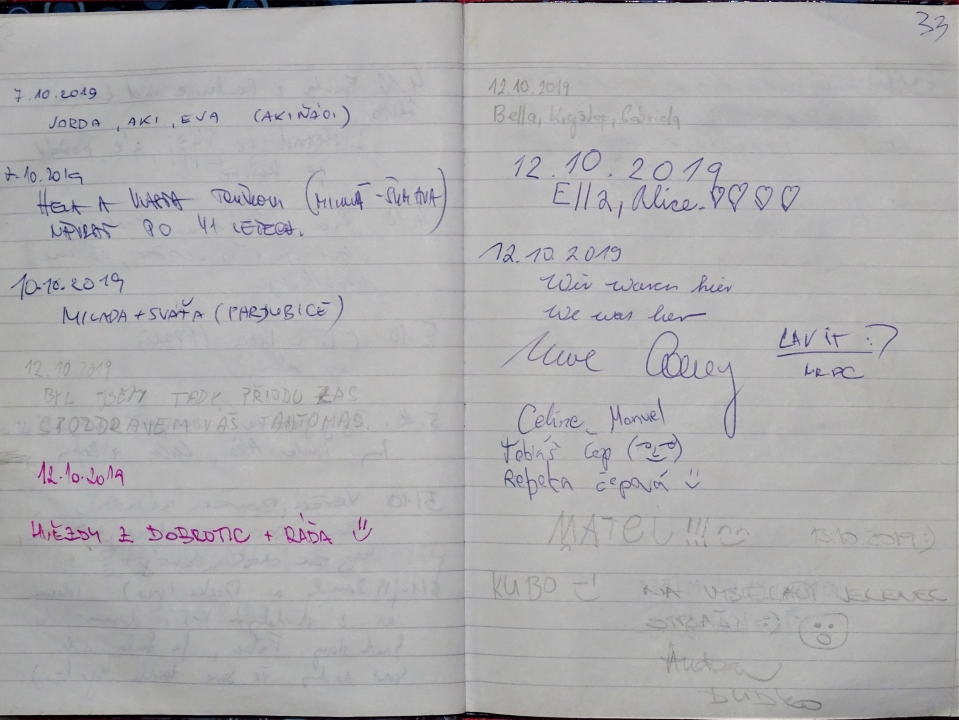 7.10.2019
JORDA, AKI, EVA (AKIŇÁCI)
7.10.2019
HELA A VLASTA
PO 41 LETECH.
10.10.2019
MILADA + SVÁŤA (PARDUBICE)
12.10.2019
BYL JSEM TADY PŘIJDU ZAS
S POZDRAVEM VÁŠ FANTOMAS
12.10.2019
HVĚZDY Z DOBROTIC + RÁĎA
33
12.10.2019
Bella, Kryštof, Gabriela
12.10.2019
Ella, Alice. ♡♡♡♡
12.10.2019
Wir waren hier
We was her
Uwe
LAV IT :)
Celine Manuel
Tobiáš Čep
Rebeka Čepová
MATEJ !!!
13.10.2019 :)
KUBO
NA